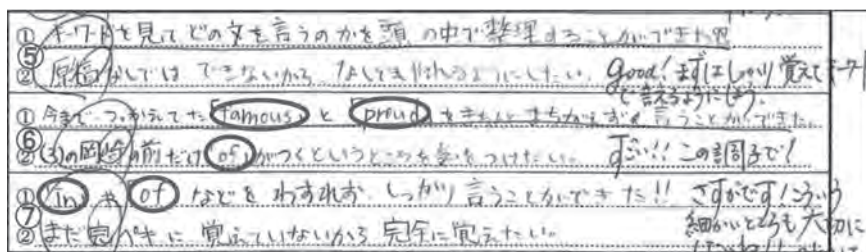 ① キーワードを見てどの文を言うのかを頭の中で整理することができた
⑤
② 原稿なしではできないから、なしでも言えるようにしたい。 Good! まずはしっかり覚えてキーワード
で言えるようにしよう。
① 今までつっかえてた「famous」と「proud」をきちんとまちがえずに言うことができた。
⑥
② (3)の岡崎の前だけ「of」がつくというところを気をつけたい。 すごい!! この調子で!
① 「in」や「of」などをわすれず、しっかり言うことができた!! さすがです!こういう
⑦ 細かいところも大切に
② まだ完ペキに覚えていないから完全に覚えたい。